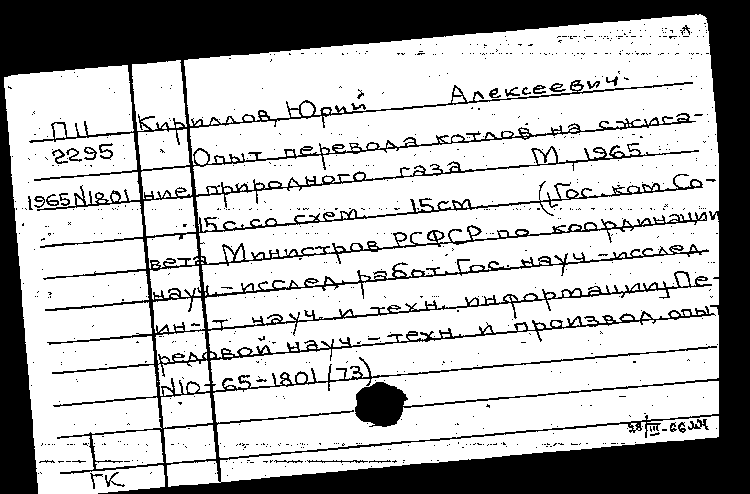 П11 Кириллов, Юрий Алексеевич.
2295 Опыт перевода котлов на сжига-
1965N1801 ние природного газа. М., 1965.
15с. со схем. 15см. (Гос. ком. Со-
вета Министров РСФСР по координации
науч.-исслед. работ. Гос. науч.-исслед.
ин-т науч. и техн. информации. Пе-
редовой науч.-техн. и производ. опыт
N10-65-1801/73)
ГК